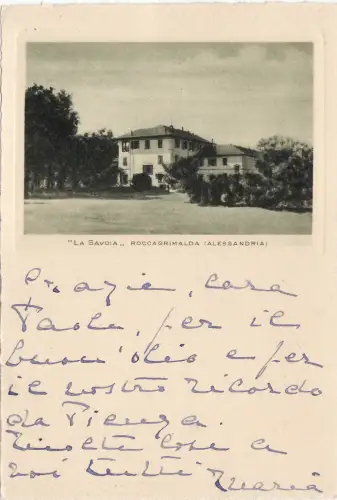 "LA SAVOIA„ ROCCAGRIMALDA (ALESSANDRIA)
Grazie, cara
Paola, per il
buon'olio e per
il vostro ricordo
da Pienza.
Molte cose a
voi tutti Maria